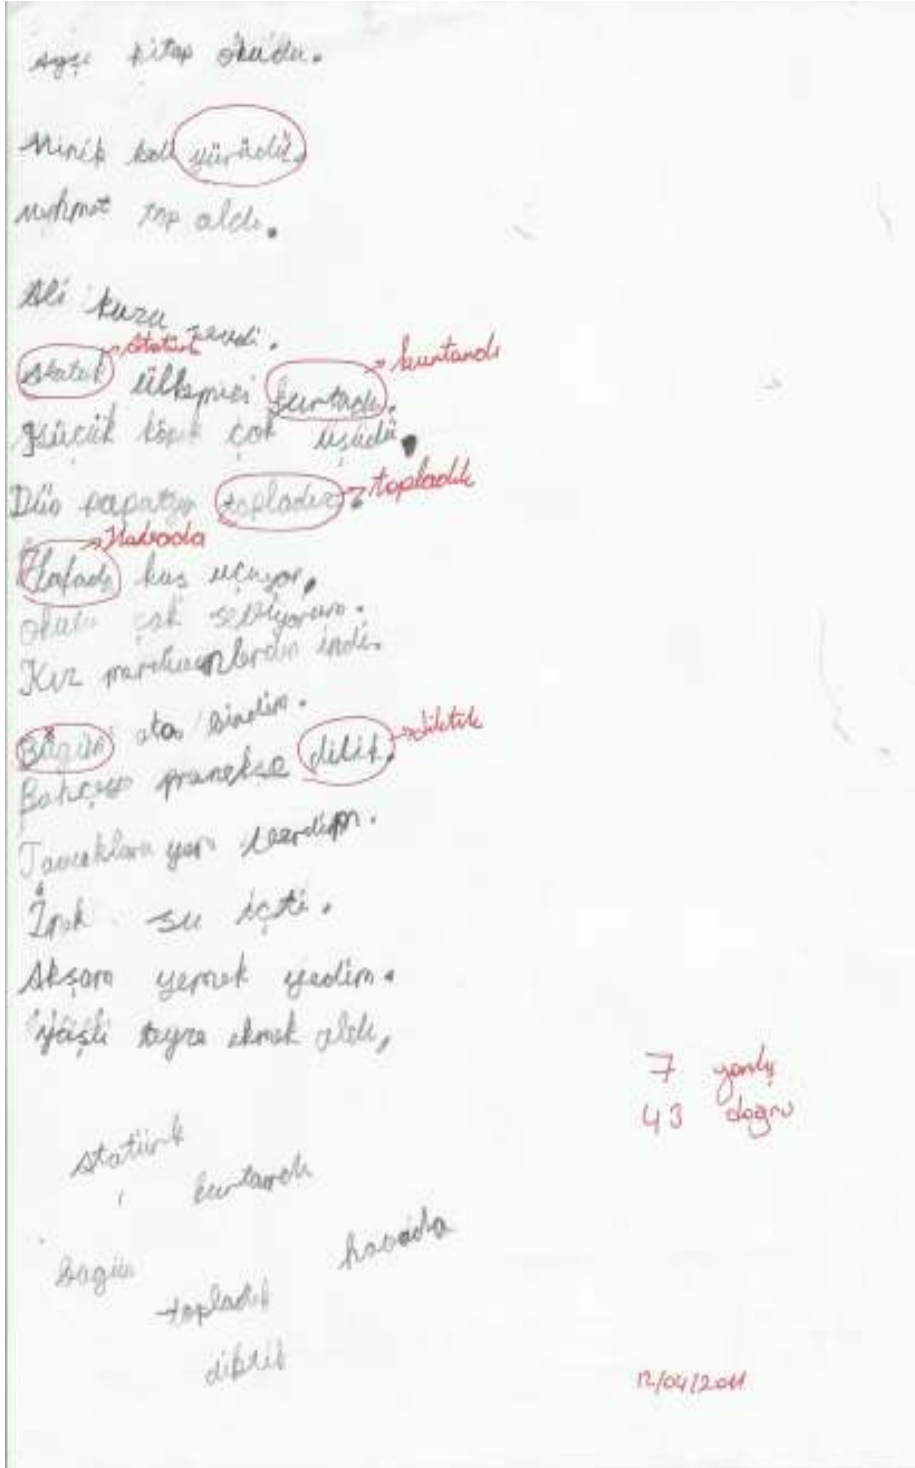 Ayşe kitap okudu.
Minik kedi yürüdü.
Mehmet top aldı.
Ali kuzu sevdi.
Atatürk
Atatük ülkemizi kurtadı.
kurtardı
Küçük köpek çok üşüdü.
Dün papatya topladız.
topladık
Havada
Hafada kuş uçuyor.
Okulu çok seviyorum.
Kız merdivenlerden indi.
Bügün ata bindim.
Bahçeye menekşe ditik.
diktik
Tavuklara yem verdim.
İpek su içti.
Akşam yemek yedim.
Yaşlı teyze ekmek aldı.
7 yanlış
43 doğru
Atatürk
kurtardı
havada
bugün
topladık
diktik
12/04/2011